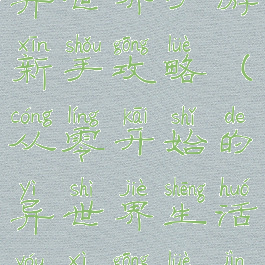 异世界
xīn shǒu gōng lüè
新手攻略（
cóng líng kāi shǐ de
从零开始的
yì shì jiè shēng huó
异世界生活
yóu xì gōng lüè